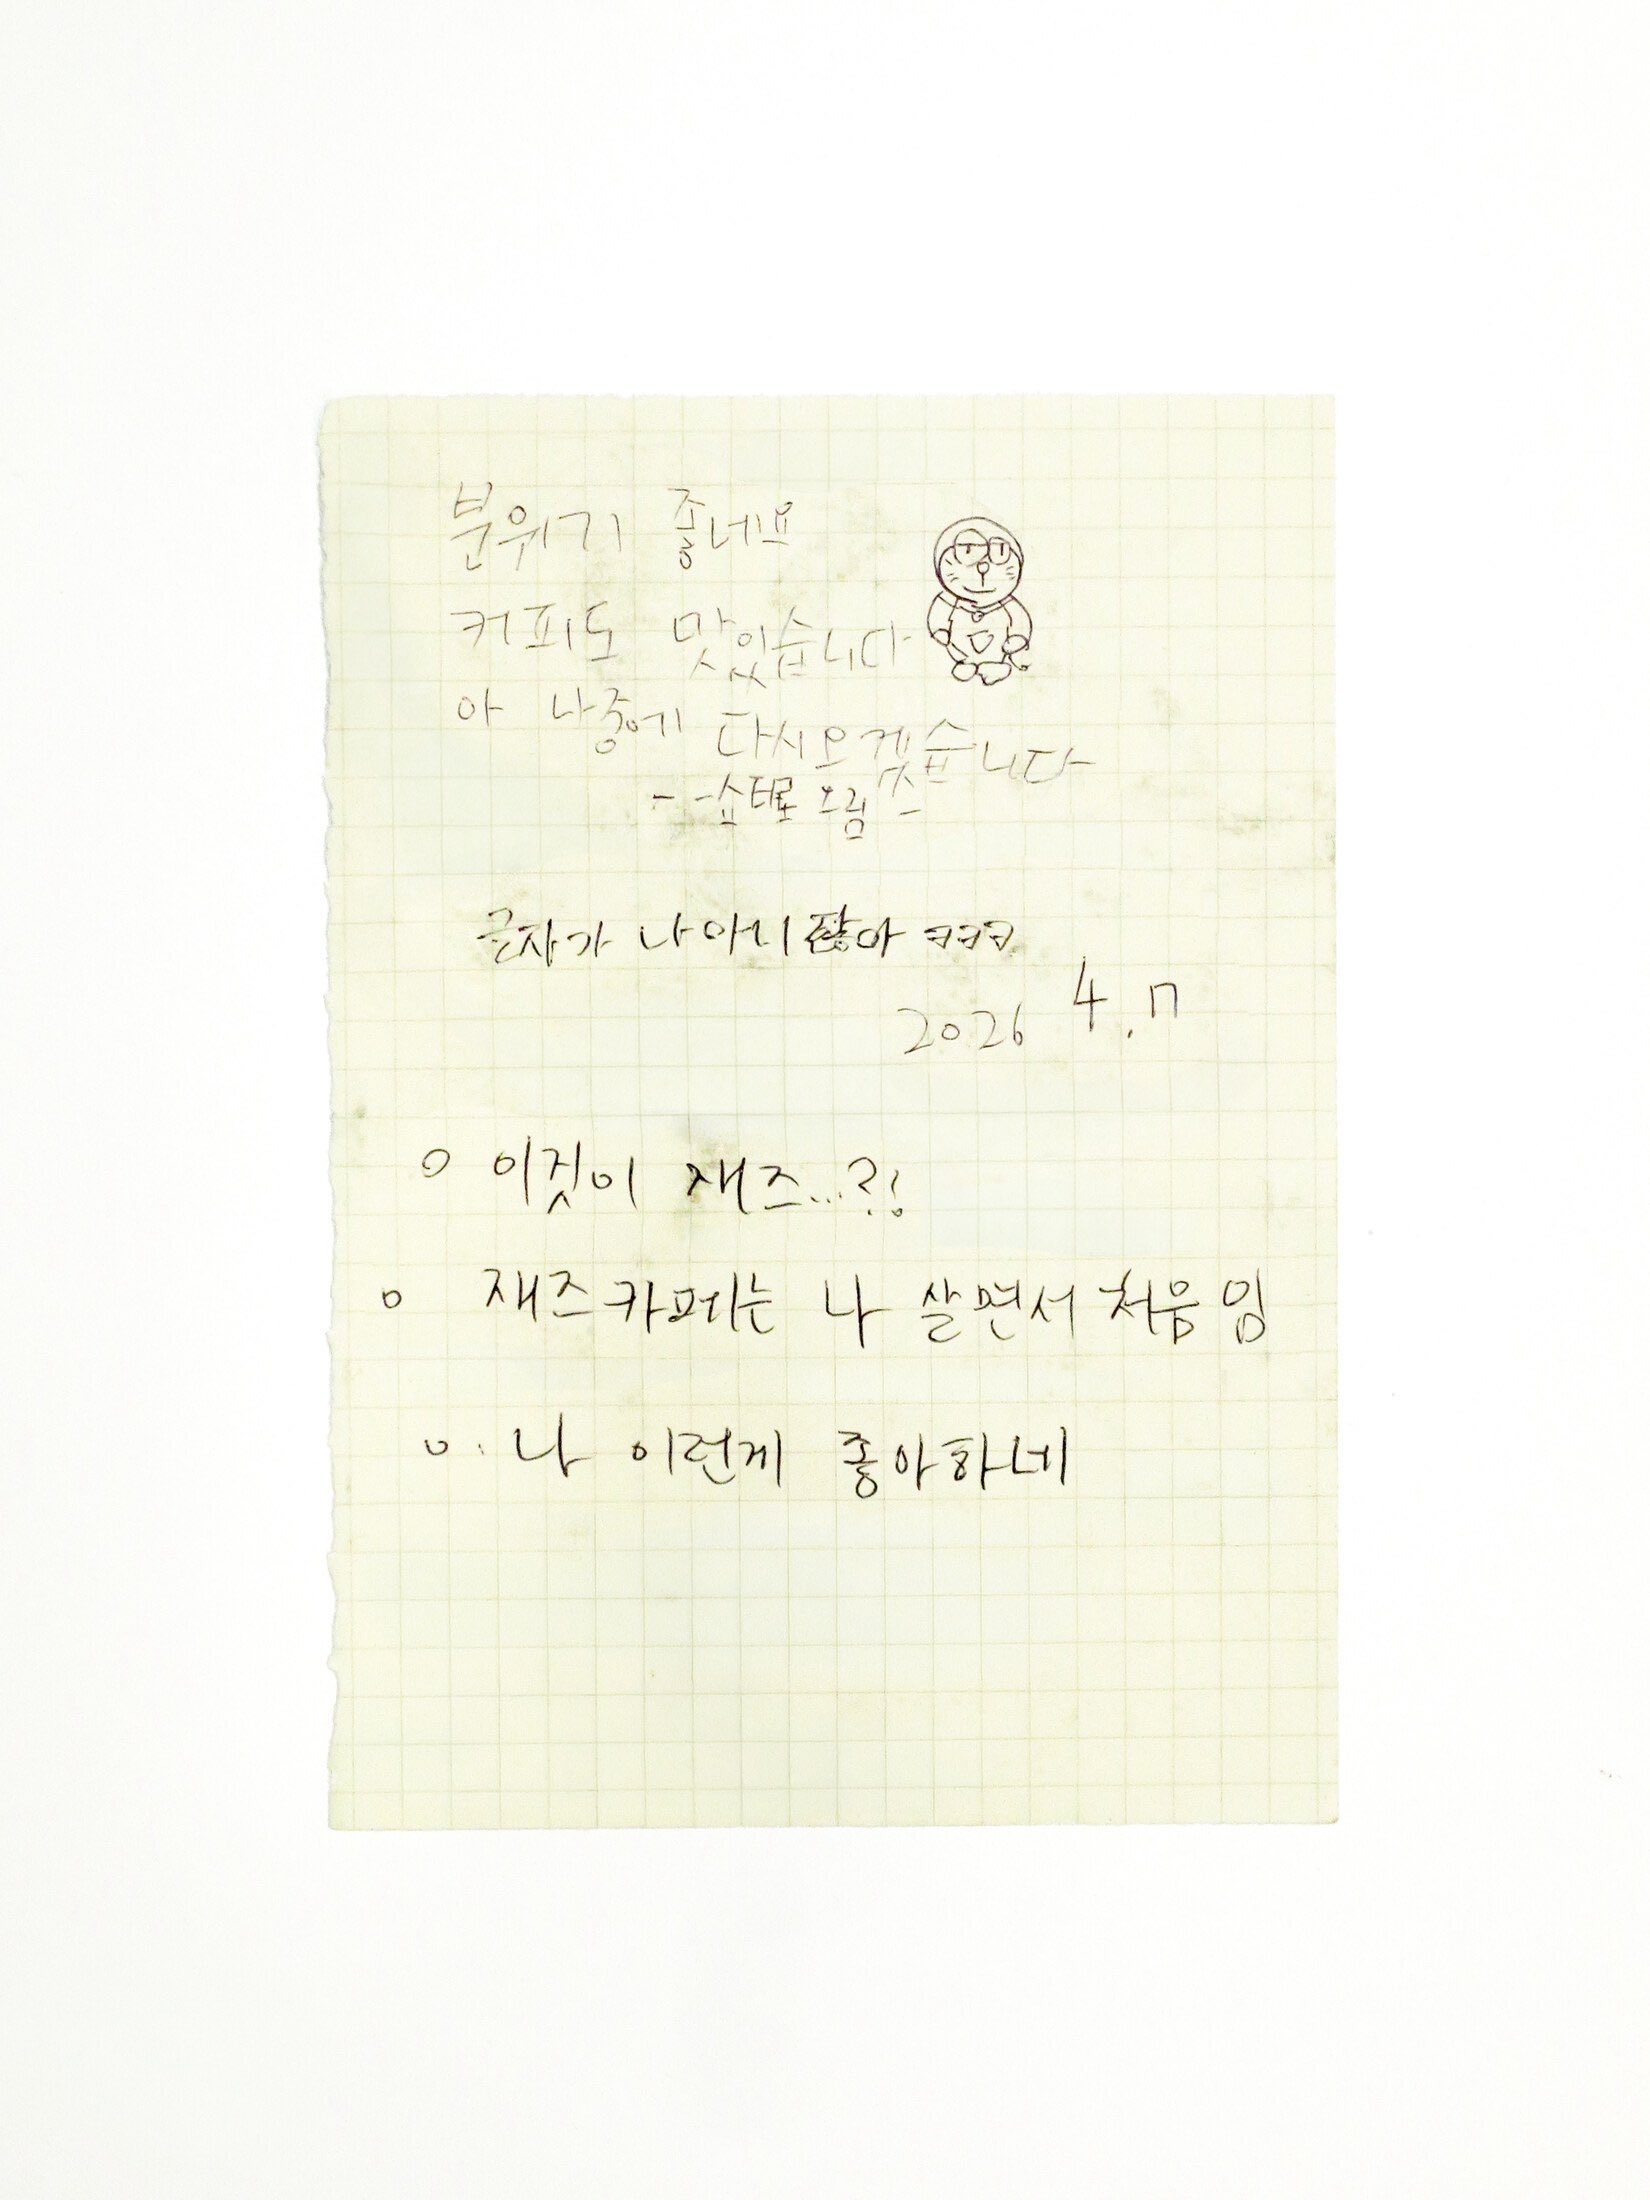 분위기 좋네요
커피도 맛있습니다
아 나중에 다시오겠습니다
글자가 나아니잖아 ㅋㅋㅋ
2026 4.17
o 이것이 재즈...?!
o 재즈카페는 나 살면서 처음임
o. 나 이런게 좋아하네